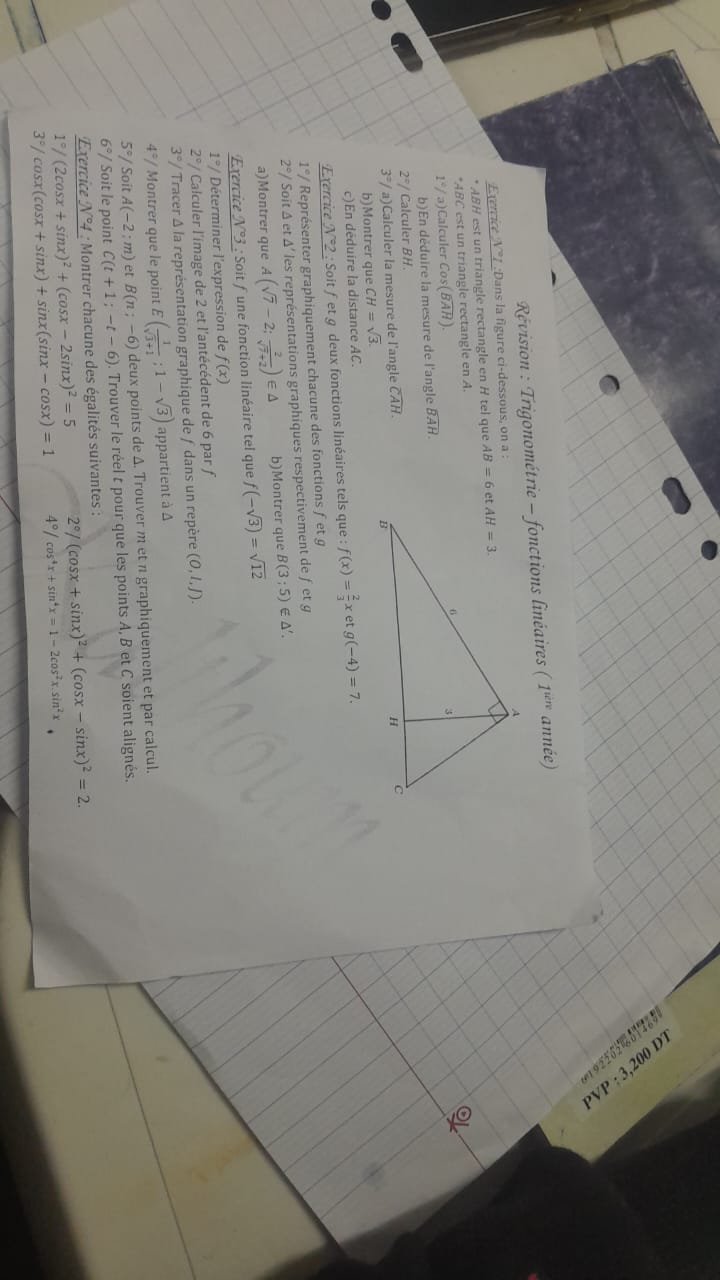 Révision : Trigonométrie – fonctions linéaires ( 1ière année)
Exercice N°1 : Dans la figure ci-dessous, on a :
• ABH est un triangle rectangle en H tel que AB = 6 et AH = 3.
• ABC est un triangle rectangle en A.
1°/ a)Calculer Cos(BAH).
b)En déduire la mesure de l'angle BAH
2°/ Calculer BH.
3°/ a)Calculer la mesure de l'angle CAH.
b)Montrer que CH = √3.
c)En déduire la distance AC.
A
6
3
B
H
C
Exercice N°2 : Soit f et g deux fonctions linéaires tels que : f(x) = 2/3 x et g(−4) = 7.
1°/ Représenter graphiquement chacune des fonctions f et g
2°/ Soit Δ et Δ' les représentations graphiques respectivement de f et g
a)Montrer que A(√7 − 2; 2/(√7+2)) ∈ Δ b)Montrer que B(3 ; 5) ∉ Δ'.
Exercice N°3 : Soit f une fonction linéaire tel que f(−√3) = √12
1°/ Déterminer l'expression de f(x)
2°/ Calculer l'image de 2 et l'antécédent de 6 par f
3°/ Tracer Δ la représentation graphique de f dans un repère (O, I, J).
4°/ Montrer que le point E (1/(√3+1) ; 1 − √3) appartient à Δ
5°/ Soit A(−2 ; m) et B(n ; −6) deux points de Δ. Trouver m et n graphiquement et par calcul.
6°/ Soit le point C(t + 1 ; −t − 6). Trouver le réel t pour que les points A, B et C soient alignés.
Exercice N°4 : Montrer chacune des égalités suivantes :
1°/ (2cosx + sinx)² + (cosx − 2sinx)² = 5 2°/ (cosx + sinx)² + (cosx − sinx)² = 2.
3°/ cosx(cosx + sinx) + sinx(sinx − cosx) = 1 4°/ cos⁴x + sin⁴x = 1 − 2cos²x.sin²x
PVP : 3,200 DT